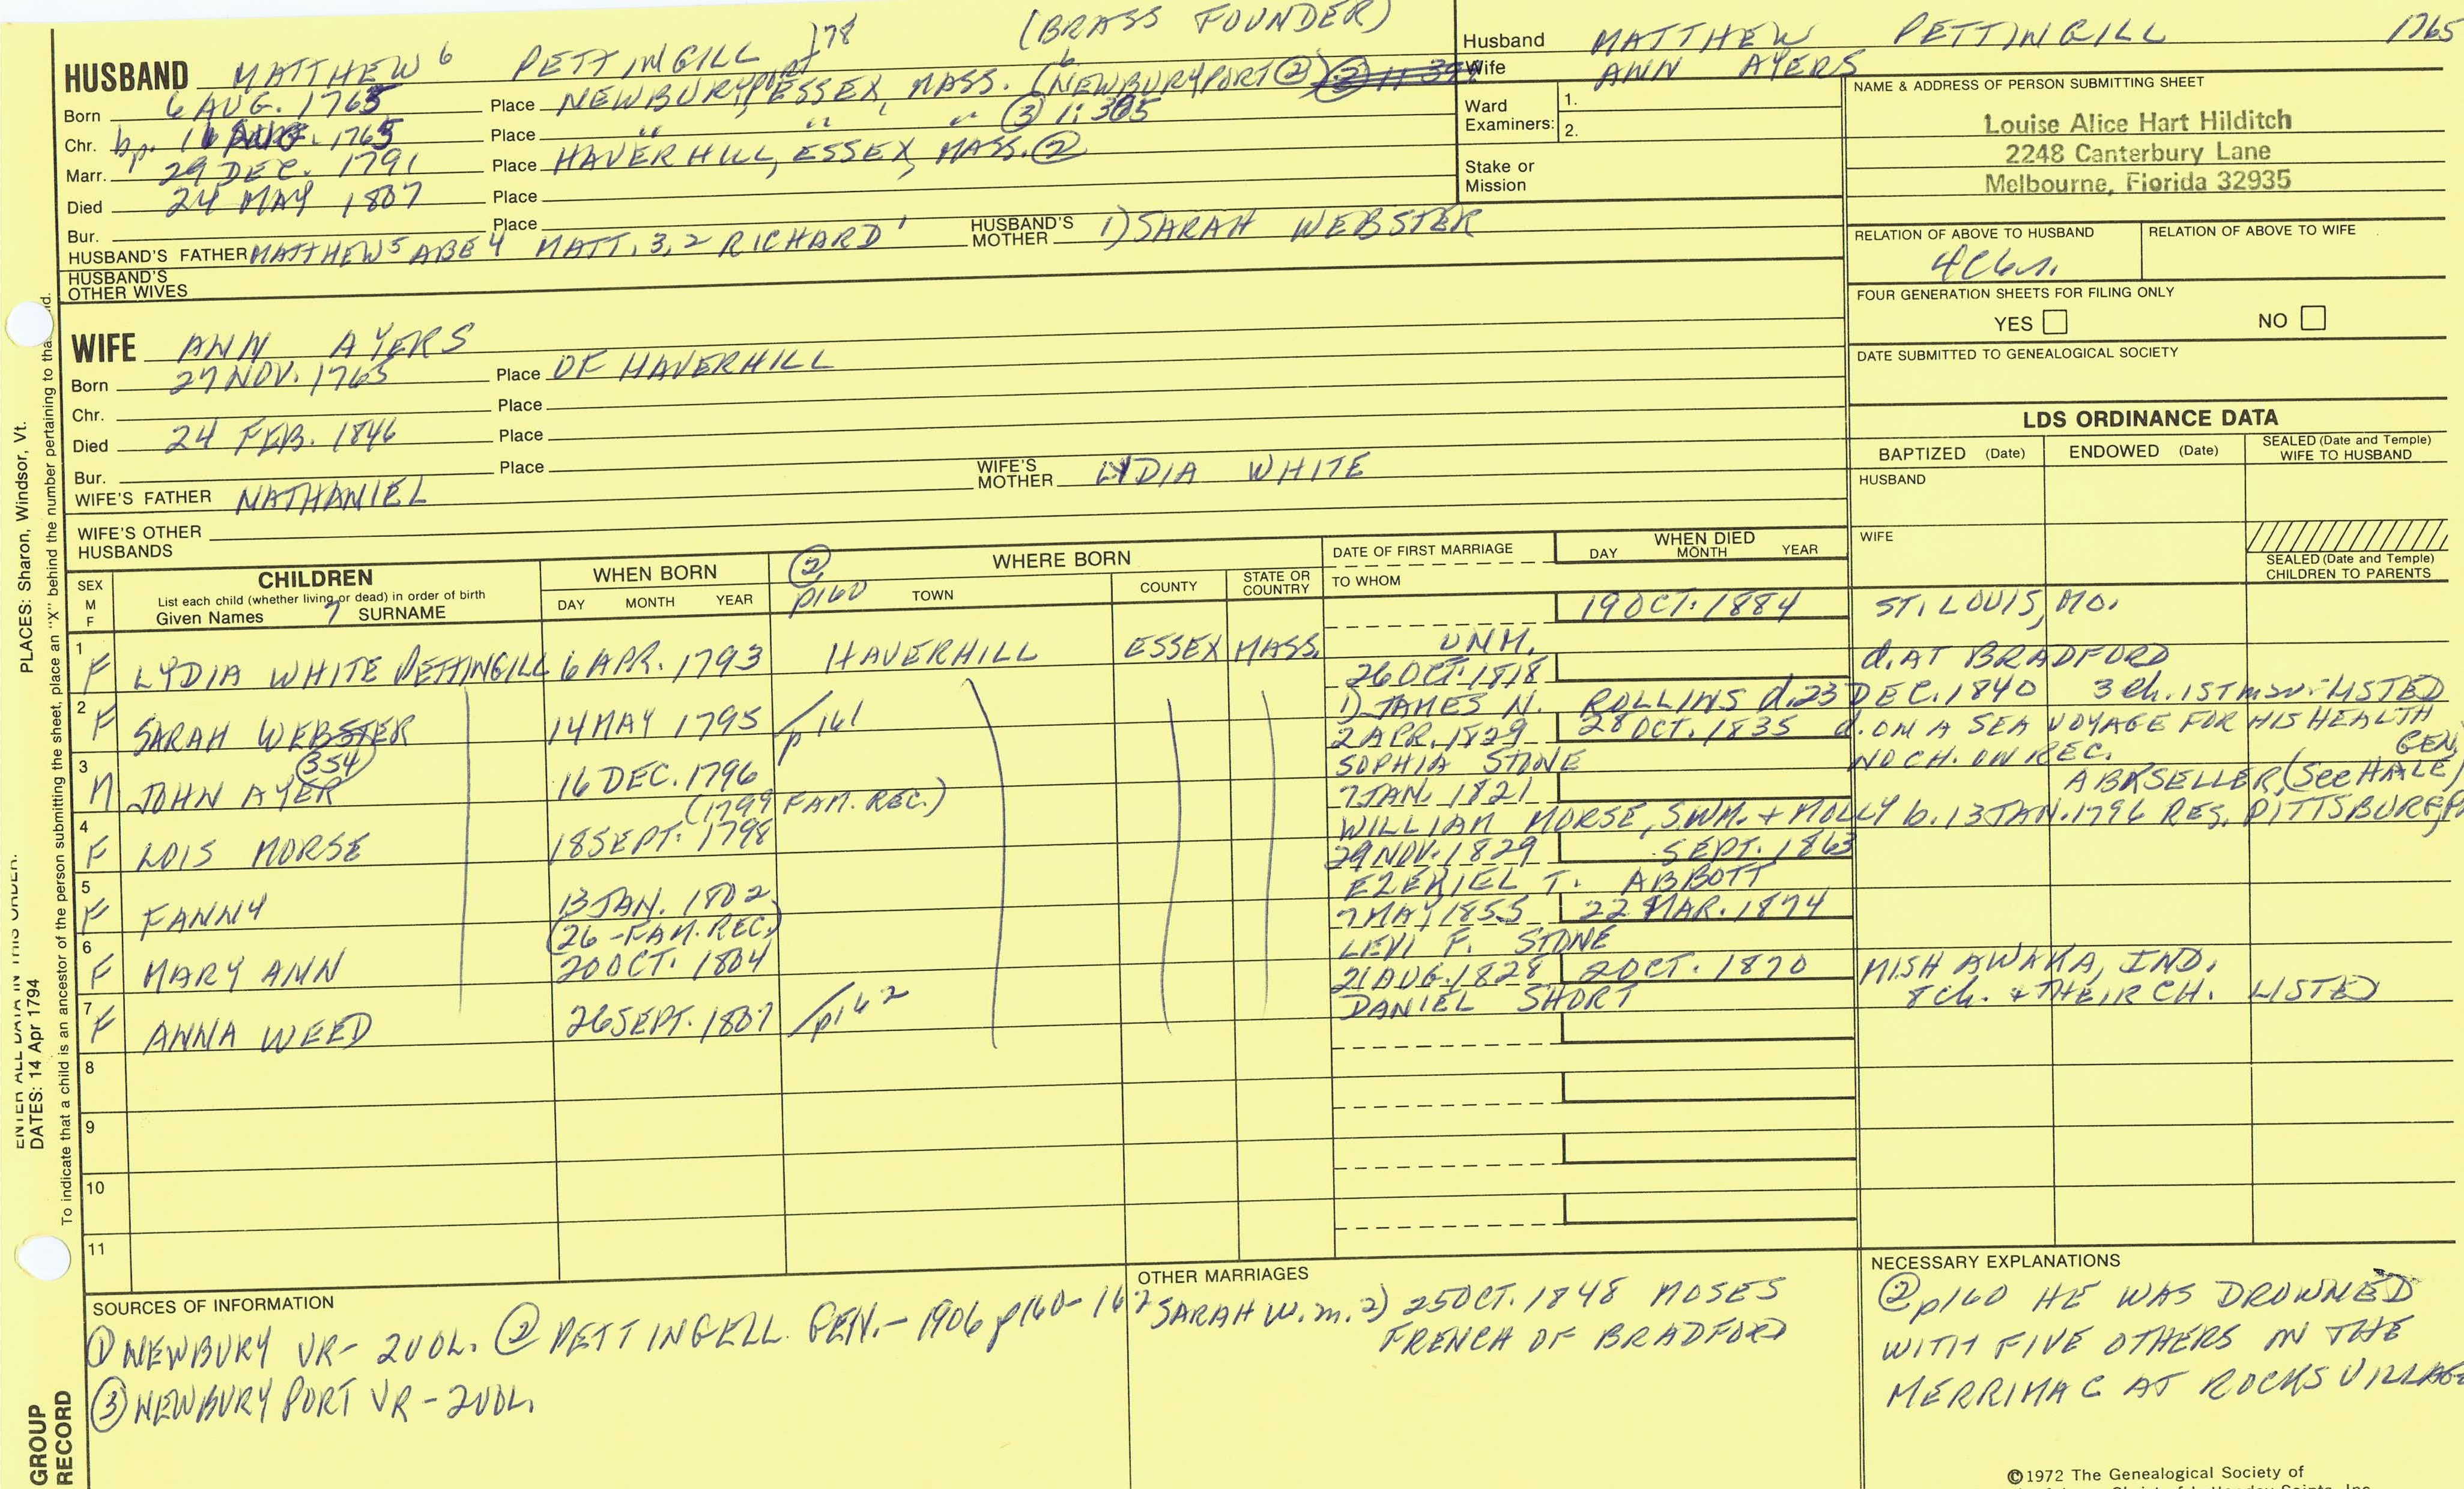 (BRASS FOUNDER)
HUSBAND MATTHEW 6 PETTINGILL 178
Born 6 AUG. 1765 Place NEWBURYPORT, ESSEX, MASS. (NEWBURYPORT ②)
Chr. bp. 1765 Place " " " ③ 1:305
Marr. 29 DEC. 1791 Place HAVERHILL, ESSEX, MASS. ②
Died 24 MAY 1807 Place
Bur. Place
HUSBAND'S FATHER MATTHEW 5 ABE 4 MATT. 3, 2 RICHARD 1 HUSBAND'S MOTHER 1) SARAH WEBSTER
HUSBAND'S OTHER WIVES
Husband MATTHEW PETTINGILL 1765
Wife ANN AYERS
Ward Examiners: 1.
2.
Stake or Mission
NAME & ADDRESS OF PERSON SUBMITTING SHEET
Louise Alice Hart Hilditch
2248 Canterbury Lane
Melbourne, Florida 32935
RELATION OF ABOVE TO HUSBAND RELATION OF ABOVE TO WIFE
FOUR GENERATION SHEETS FOR FILING ONLY
YES NO
DATE SUBMITTED TO GENEALOGICAL SOCIETY
WIFE ANN AYERS
Born 27 NOV. 1765 Place OF HAVERHILL
Chr. Place
Died 24 FEB. 1846 Place
Bur. Place
WIFE'S FATHER NATHANIEL WIFE'S MOTHER LYDIA WHITE
WIFE'S OTHER HUSBANDS
LDS ORDINANCE DATA
BAPTIZED (Date) ENDOWED (Date) SEALED (Date and Temple) WIFE TO HUSBAND
HUSBAND
WIFE
SEALED (Date and Temple) CHILDREN TO PARENTS
SEX M F
CHILDREN
List each child (whether living or dead) in order of birth
Given Names 7 SURNAME
WHEN BORN
DAY MONTH YEAR
② p160
WHERE BORN
TOWN COUNTY STATE OR COUNTRY
DATE OF FIRST MARRIAGE
TO WHOM
WHEN DIED
DAY MONTH YEAR
19 OCT. 1884 ST. LOUIS, MO.
1 F LYDIA WHITE PETTINGILL 6 APR. 1793 HAVERHILL ESSEX MASS. UNM.
26 OCT. 1818 d. AT BRADFORD
2 F SARAH WEBSTER 14 MAY 1795 p161 1) JAMES N. ROLLINS d. 23 DEC. 1840 3 ch. 1ST LISTED
2 APR. 1829 28 OCT. 1835 d. ON A SEA VOYAGE FOR HIS HEALTH
3 M JOHN AYER (354) 16 DEC. 1796 SOPHIA STONE NO CH. ON REC.
A BKSELLER (See HALE GEN.)
(1799 FAM. REC.) 7 JAN. 1821
4 F LOIS MORSE 18 SEPT. 1798 WILLIAM MORSE, S. WM. + MOLLY b. 13 JAN. 1796 RES. PITTSBURG,
29 NOV. 1829 SEPT. 1863
5 F FANNY 13 JAN. 1802 EZEKIEL T. ABBOTT
(26 - FAM. REC.) 7 MAY 1855 22 MAR. 1874
6 F MARY ANN 20 OCT. 1804 LEVI F. STONE
21 AUG. 1828 2 OCT. 1870 MISHAWAKA, IND.
7 F ANNA WEED 26 SEPT. 1807 p162 DANIEL SHORT 8 ch. + THEIR CH. LISTED
8
9
10
11
SOURCES OF INFORMATION
① NEWBURY VR - 2 VOL. ② PETTINGELL GEN. - 1906 p160-162
③ NEWBURYPORT VR - 2 VOL.
OTHER MARRIAGES
SARAH W. m. 2) 25 OCT. 1848 MOSES
FRENCH OF BRADFORD
NECESSARY EXPLANATIONS
② p160 HE WAS DROWNED
WITH FIVE OTHERS IN THE
MERRIMAC AT ROCKS VILLAGE
©1972 The Genealogical Society of
PLACES: Sharon, Windsor, Vt.
ENTER ALL DATA IN THIS ORDER:
DATES: 14 Apr 1794
To indicate that a child is an ancestor of the person submitting the sheet, place an "X" behind the number pertaining to
GROUP RECORD